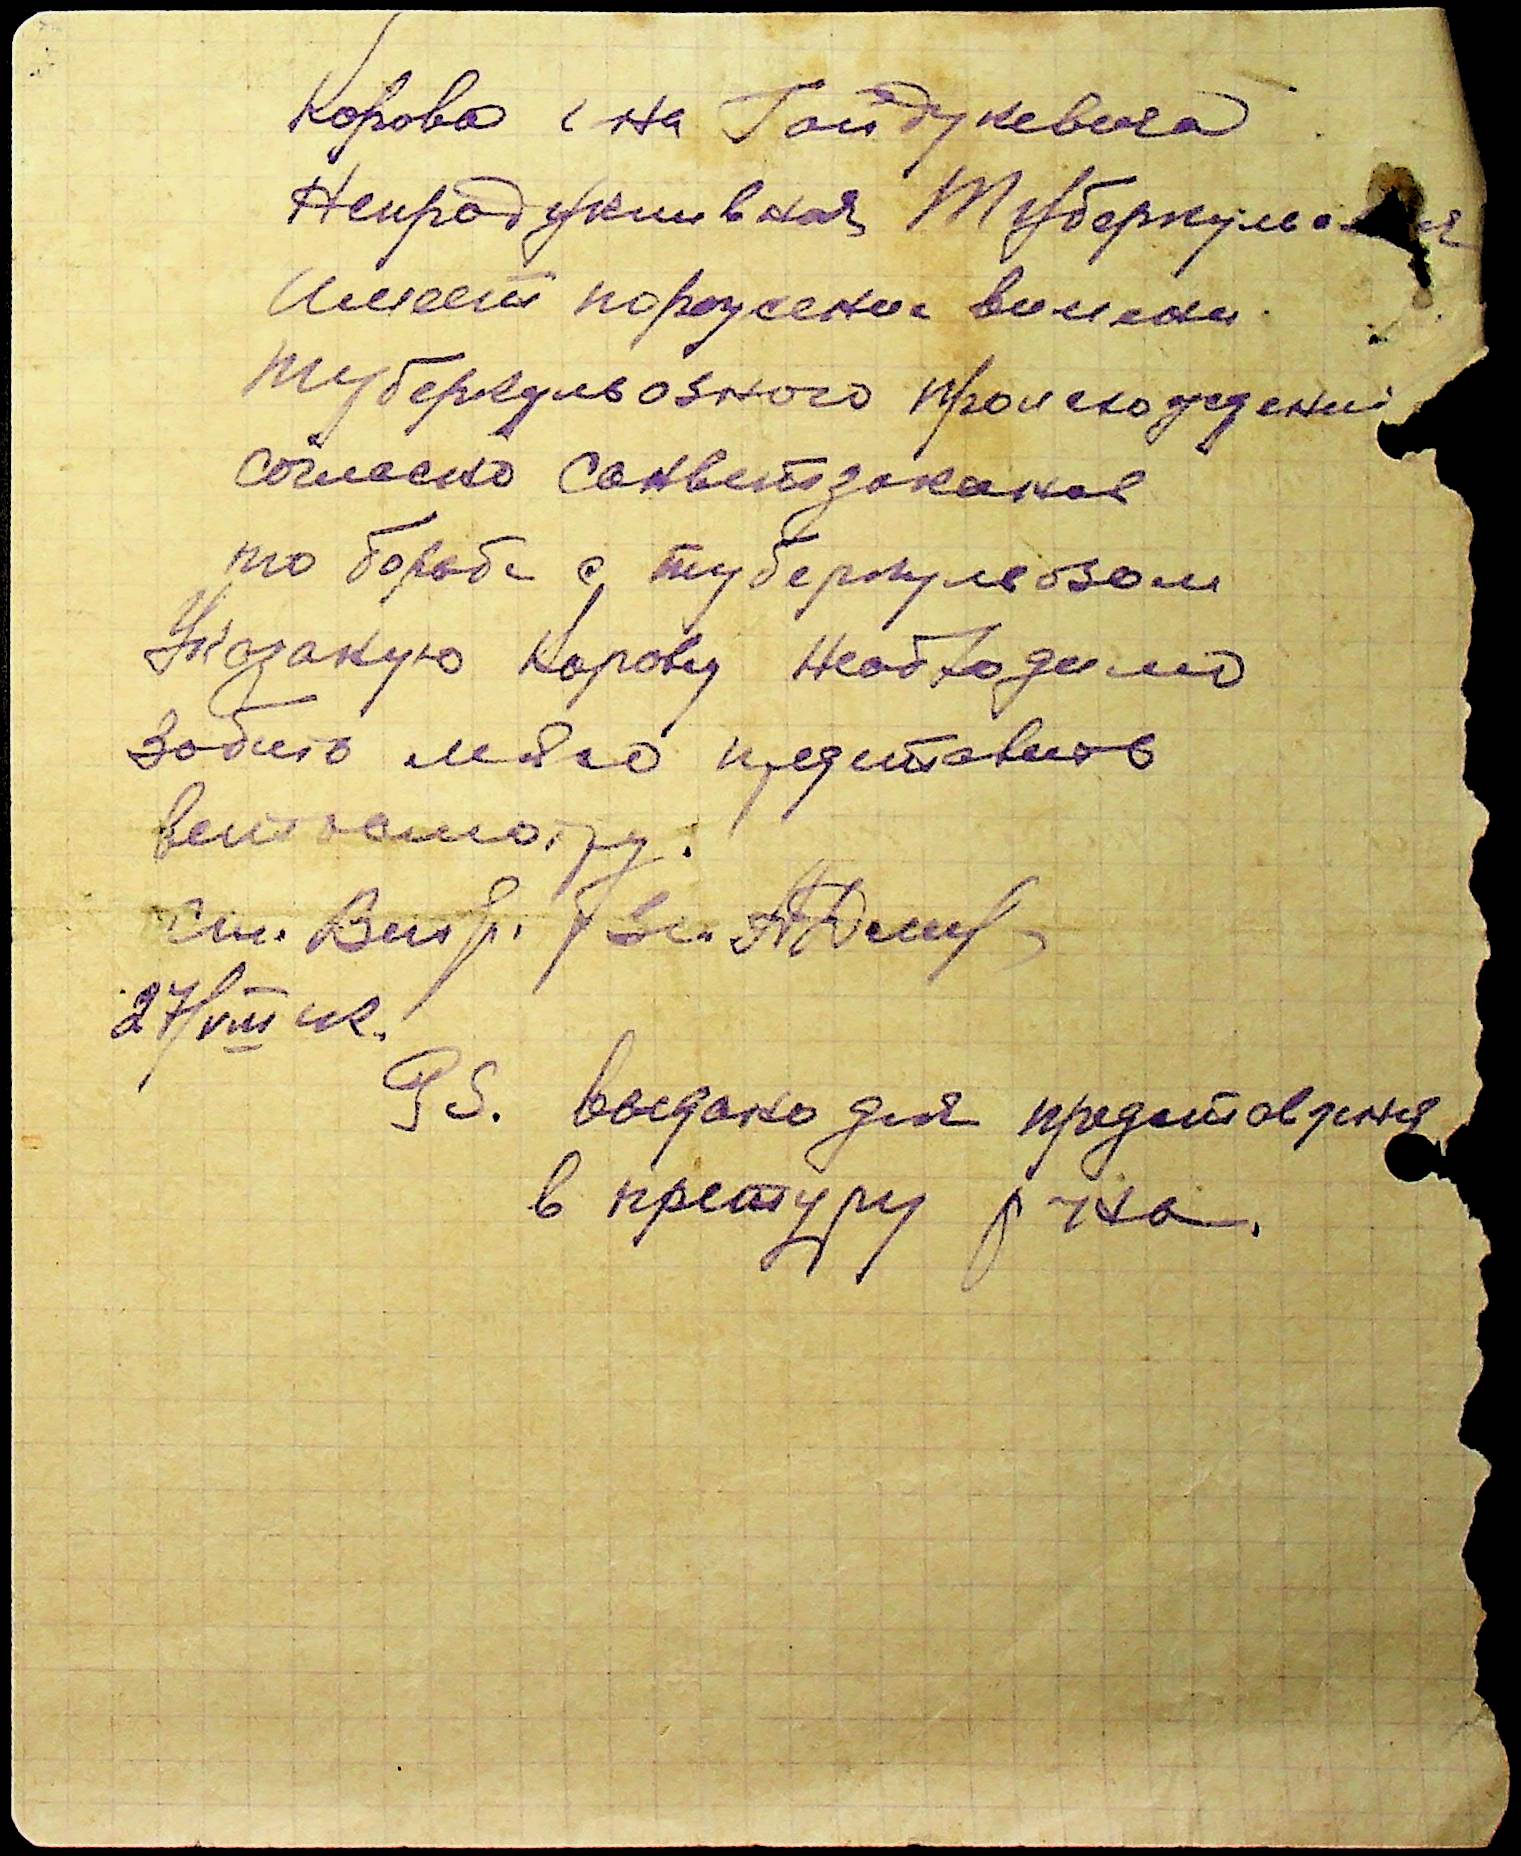 Корова г-на Гайдукевича
Непродуктивная Туберкульозная
Имеет поражение вимени
туберкульозного происхождения
согласно Санветзакана
по борьбе с туберкульозом
Указаную Корову необходимо
забить мясо представить
ветосмотру.
ст. Ветвр.
27/VIII
PS. выдано для представления
в претуру р-на.